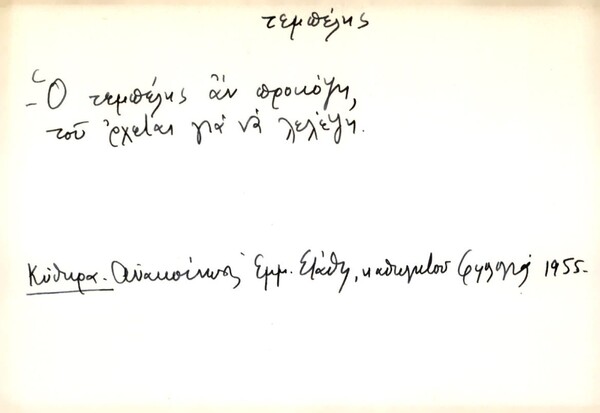 τεμπέλης
– Ὁ τεμπέλης ἂν προκόψη,
τοῦ ἔρχεται γιὰ νὰ λελέψη.
Κύθηρα. Ἀνακοίνωσις Ἐμμ. Στάθη, καθηγητοῦ 1955.